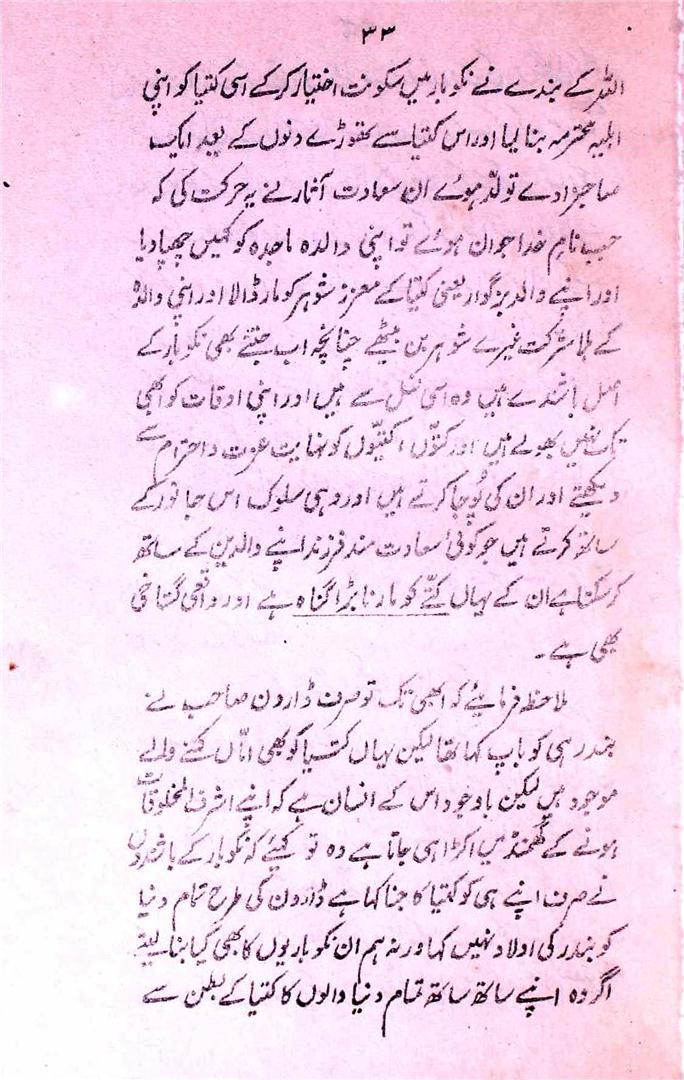 ۳۳
اللہ کے بندے نے نکوبار میں سکونت اختیار کر کے اسی کتیا کو اپنی
اہلیہ محترمہ بنا لیا اور اس کتیا سے تھوڑے دنوں کے بعد ایک
صاحبزادے تولّد ہوئے ان سعادت آثار نے یہ حرکت کی کہ
جب نام خدا جوان ہوئے تو اپنی والدہ ماجدہ کو کہیں چھپا دیا
اور اپنے والد بزرگوار یعنی کتیا کے معزز شوہر کو مار ڈالا اور اپنی والدہ
کے بلا شرکت غیرے شوہر بن بیٹھے چنانچہ اب جتنے بھی نکوبار کے
اصل باشندے ہیں وہ اسی نسل سے ہیں اور اپنی اوقات کو ابھی
تک نہیں بھولے ہیں اور کتوّں اکتیّوں کو نہایت عزت و احترام سے
دیکھتے اور ان کی پُوجا کرتے ہیں اور وہی سلوک اس جانور کے
ساتھ کرتے ہیں جو کوئی سعادت مند فرزند اپنے والدین کے ساتھ
کر سکتا ہے ان کے یہاں کتّے کو مارنا بڑا گناہ ہے اور واقعی گستاخی
بھی ہے۔
ملاحظہ فرمایئے کہ ابھی تک تو صرف ڈارون صاحب نے
بندر ہی کو باپ کہا تھا لیکن یہاں کتیا کو بھی امّاں کہنے والے
موجود ہیں لیکن باوجود اس کے انسان ہے کہ اپنے اشرف المخلوقات
ہونے کے گھمنڈ میں اکڑا ہی جاتا ہے وہ تو کہیئے کہ نکوبار کے باشندوں
نے صرف اپنے ہی کو کتیا کا جنا کہا ہے ڈارون کی طرح تمام دنیا
کو بندر کی اولاد نہیں کہا ورنہ ہم ان نکوباریوں کا بھی کیا بنا لیتے
اگر وہ اپنے ساتھ ساتھ تمام دنیا والوں کا کتیا کے بطن سے